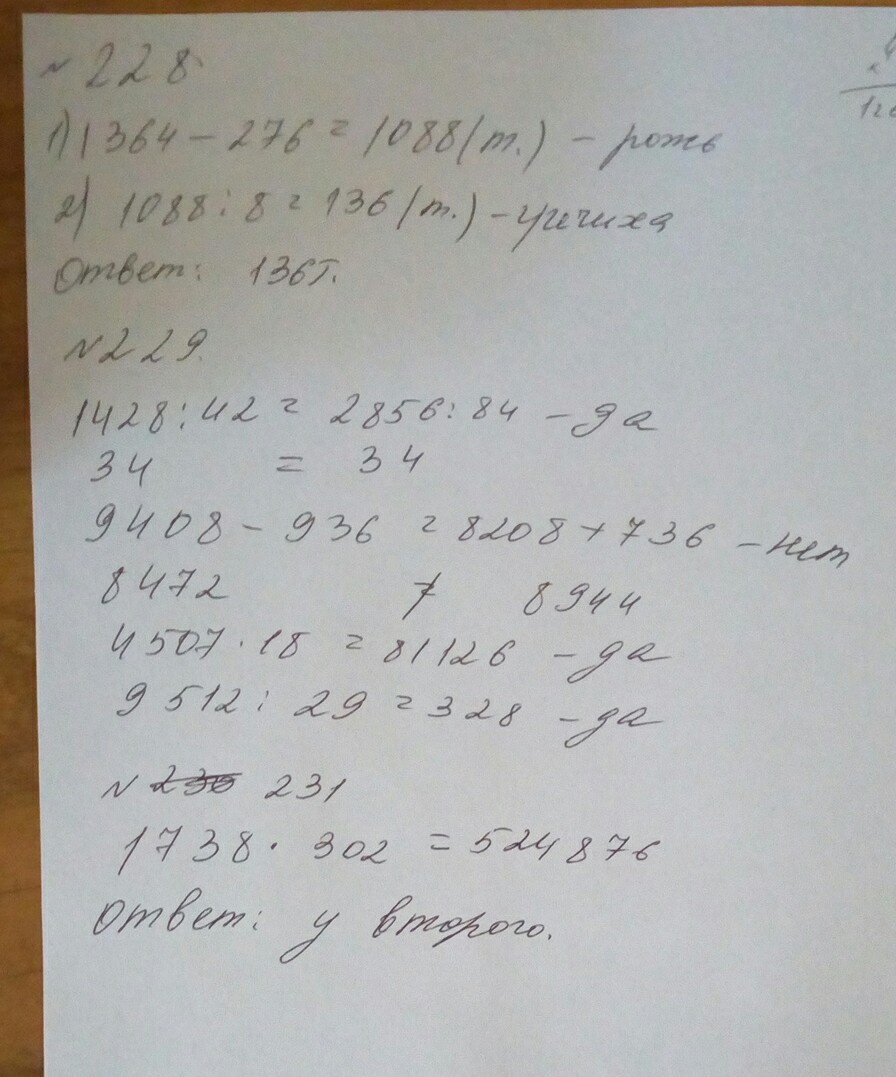 № 228
1) 1364 - 276 = 1088 (т.) - рожь
2) 1088 : 8 = 136 (т.) - гречиха
Ответ: 136т.
№ 229.
1428 : 42 = 2856 : 84 - да
34 = 34
9408 - 936 = 8208 + 736 - нет
8472 ≠ 8944
4507 · 18 = 81126 - да
9512 : 29 = 328 - да
№ 230 231
1738 · 302 = 524876
Ответ: у второго.